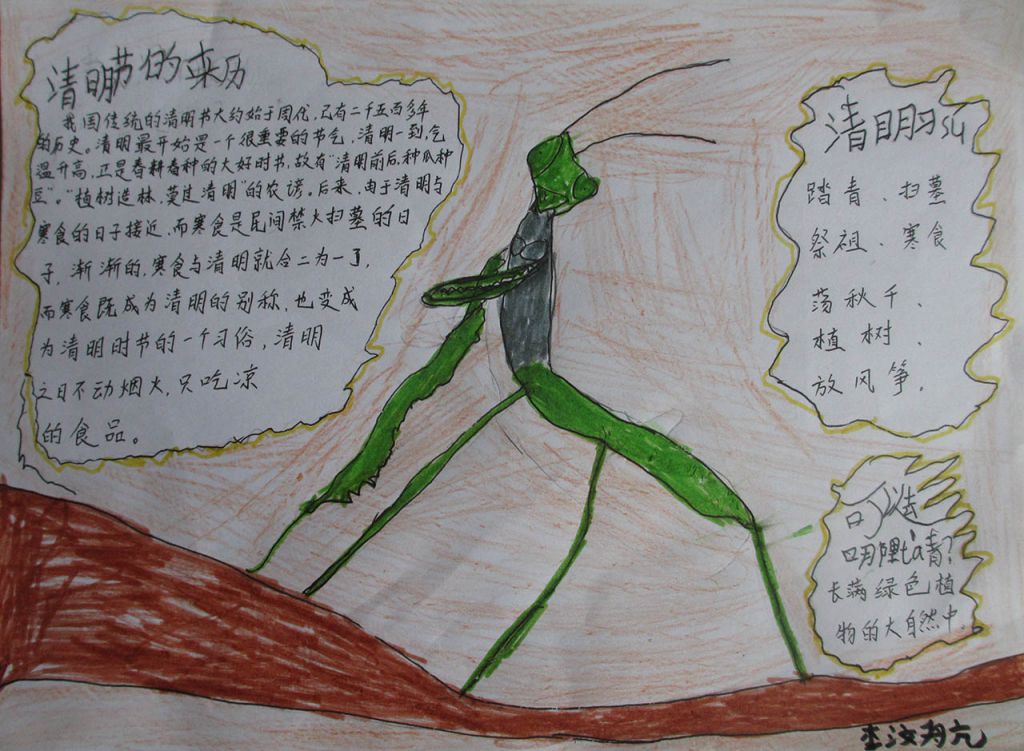 清明节的来历
我国传统的清明节大约始于周代,已有二千五百多年
的历史。清明最开始是一个很重要的节气,清明一到,气
温升高,正是春耕春种的大好时节,故有“清明前后,种瓜种
豆”。“植树造林,莫过清明”的农谚。后来,由于清明与
寒食的日子接近,而寒食是民间禁火扫墓的日
子,渐渐的,寒食与清明就合二为一了,
而寒食既成为清明的别称,也变成
为清明时节的一个习俗,清明
之日不动烟火,只吃凉
的食品。
清明习su
踏青、扫墓
祭祖、寒食
荡秋千、
植树、
放风筝.
可以去
哪哩ta青?
长满绿色植
物的大自然中.